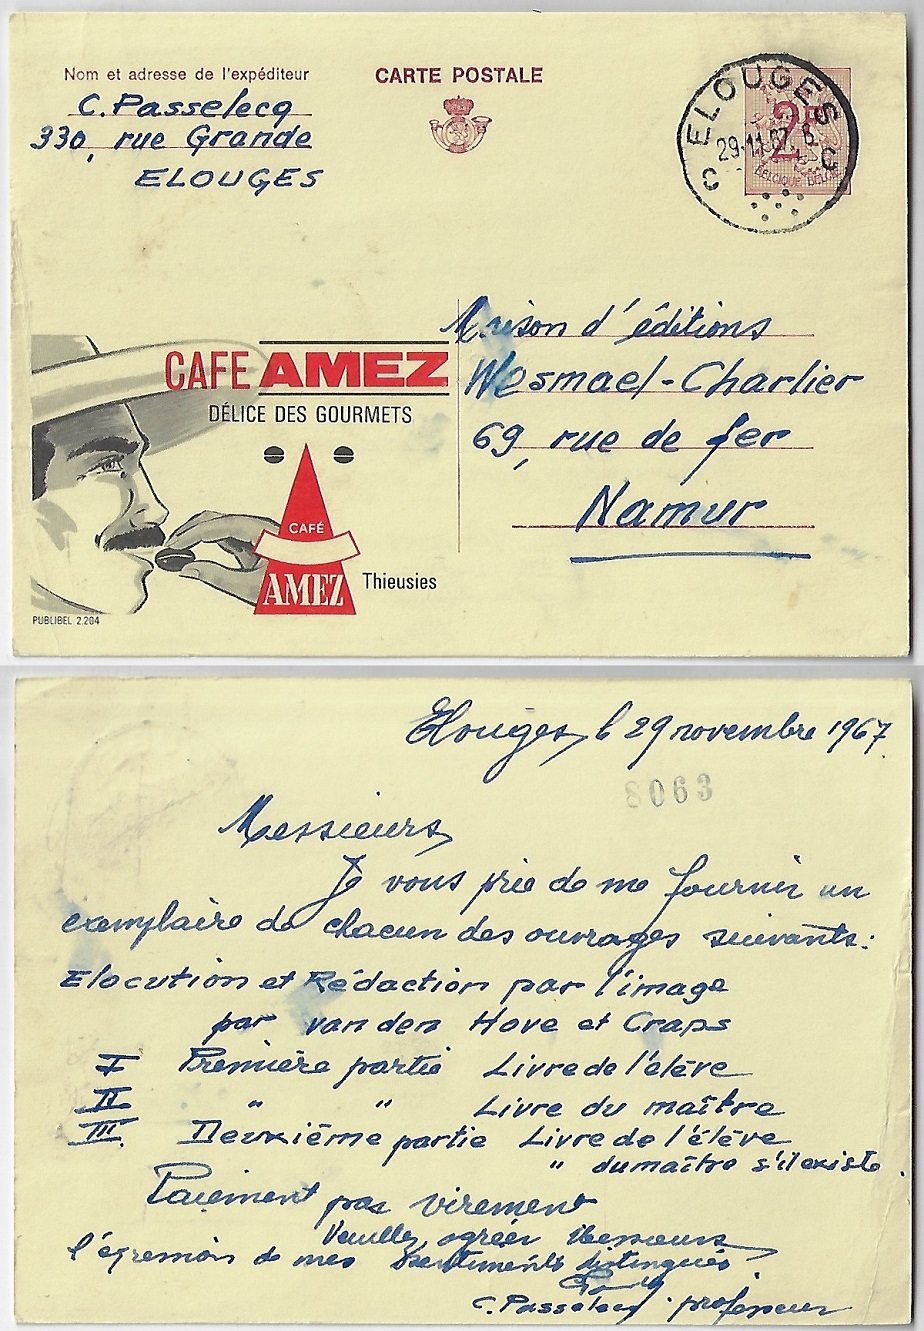 Nom et adresse de l'expéditeur
C. Passelecq
330, rue Grande
ELOUGES
CARTE POSTALE
ELOUGES
29-11-67
C C
2F
BELGIQUE BELGIE
Maison d'éditions
Wesmael-Charlier
69, rue de fer
Namur
CAFE AMEZ
DÉLICE DES GOURMETS
CAFÉ
AMEZ
Thieusies
PUBLIBEL 2.204
Elouges, le 29 novembre 1967.
8063
Messieurs,
Je vous prie de me fournir un
exemplaire de chacun des ouvrages suivants :
Elocution et Rédaction par l'image
par van den Hove et Craps
I Première partie Livre de l'élève
II " " Livre du maître
III. Deuxième partie Livre de l'élève
" du maître s'il existe.
Paiement par virement
Veuillez agréer Messieurs
l'expression de mes sentiments distingués
C. Passelecq professeur